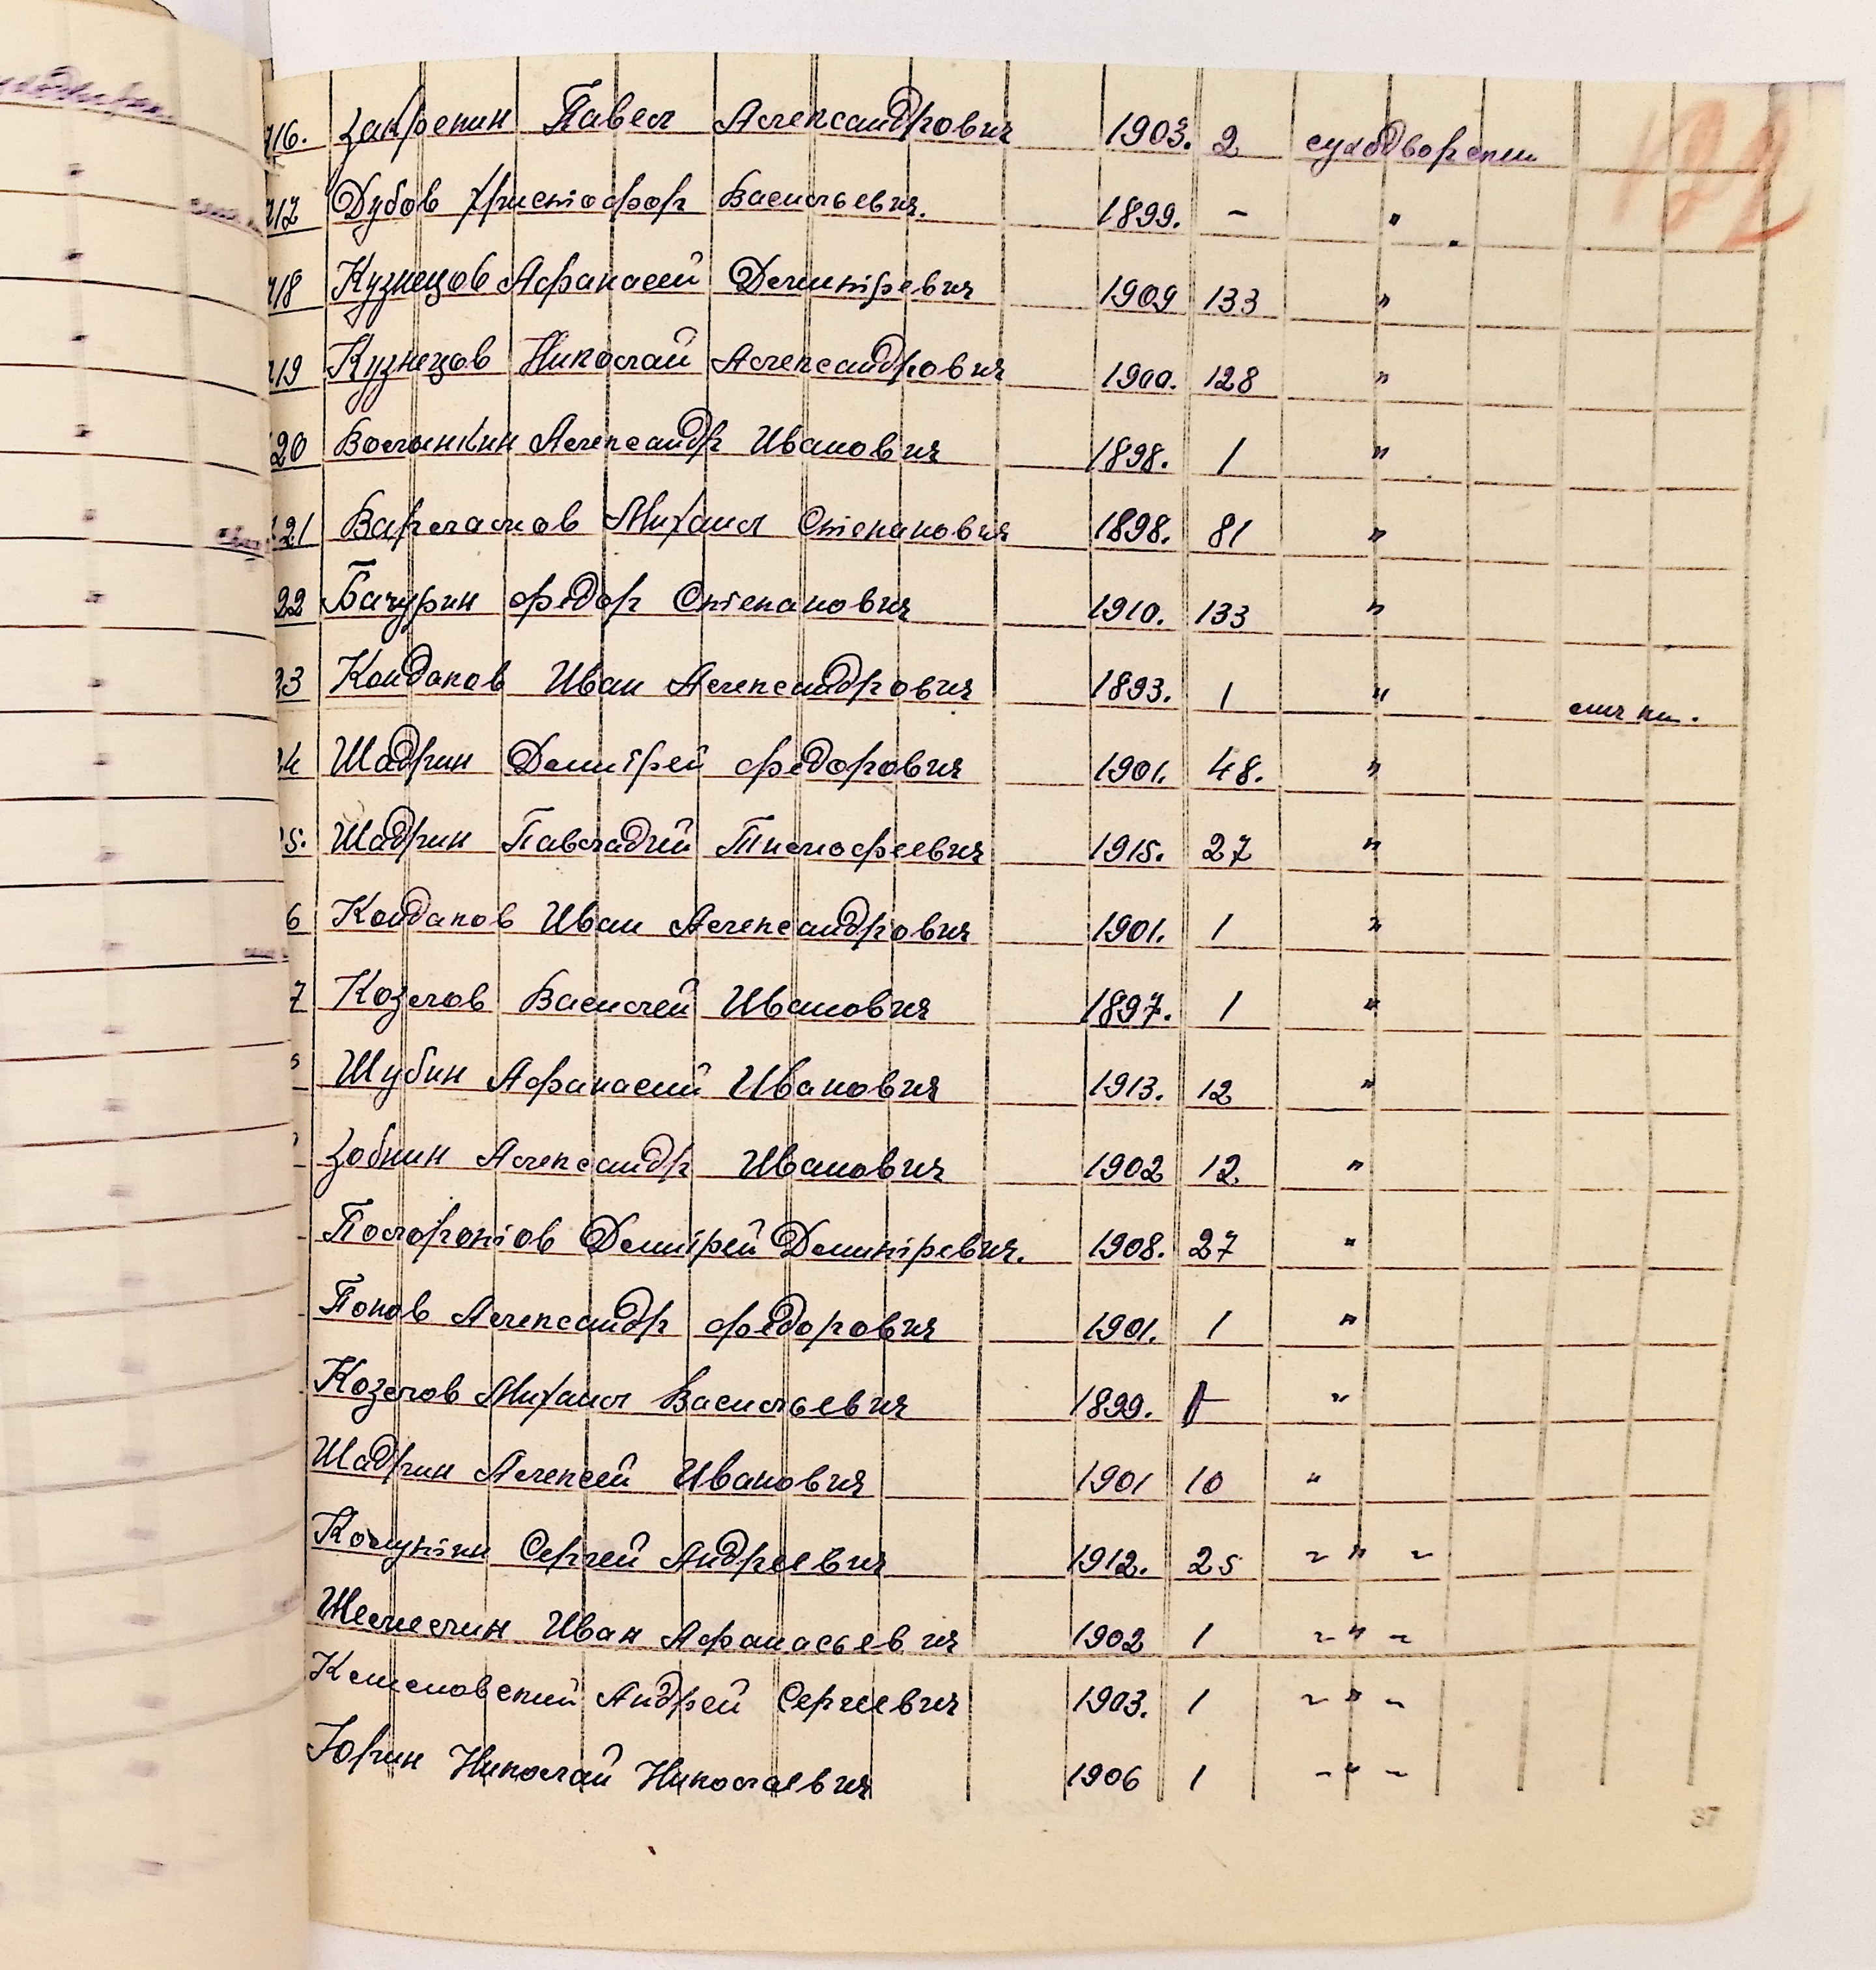 122
16. Закрепин Павел Александрович 1903. 2 суходворским
17 Дубов Христофор Васильевич. 1899. – "
18 Кузнецов Афанасий Демитревич 1909 133 "
19 Кузнецов Николай Александрович 1900. 128 "
20 Волынкин Александр Иванович 1898. 1 "
21 Варлаков Михаил Степанович 1898. 81 "
22 Бачурин Федор Степанович 1910. 133 "
23 Кондаков Иван Александрович 1893. 1 "
24 Шадрин Демитрей Федорович 1901. 48. "
25. Шадрин Павладий Тимофеевич 1915. 27 "
6 Кондаков Иван Александрович 1901. 1 "
7 Козлов Василей Иванович 1897. 1 "
Шубин Афанасий Иванович 1913. 12 "
Зобнин Александр Иванович 1902 12. "
Полоротов Демитрей Демитревич. 1908. 27 "
Попов Александр Федорович 1901. 1 "
Козелов Михаил Васильевич 1899. "
Шадрин Алексей Иванович 1901 10 "
Сергей Андреевич 1912. 25 ~ " ~
Иван Афанасьевич 1902 1 ~ " ~
Андрей Сергеевич 1903. 1 ~ " ~
Юрин Николай Николаевич 1906 1 ~ " ~
37